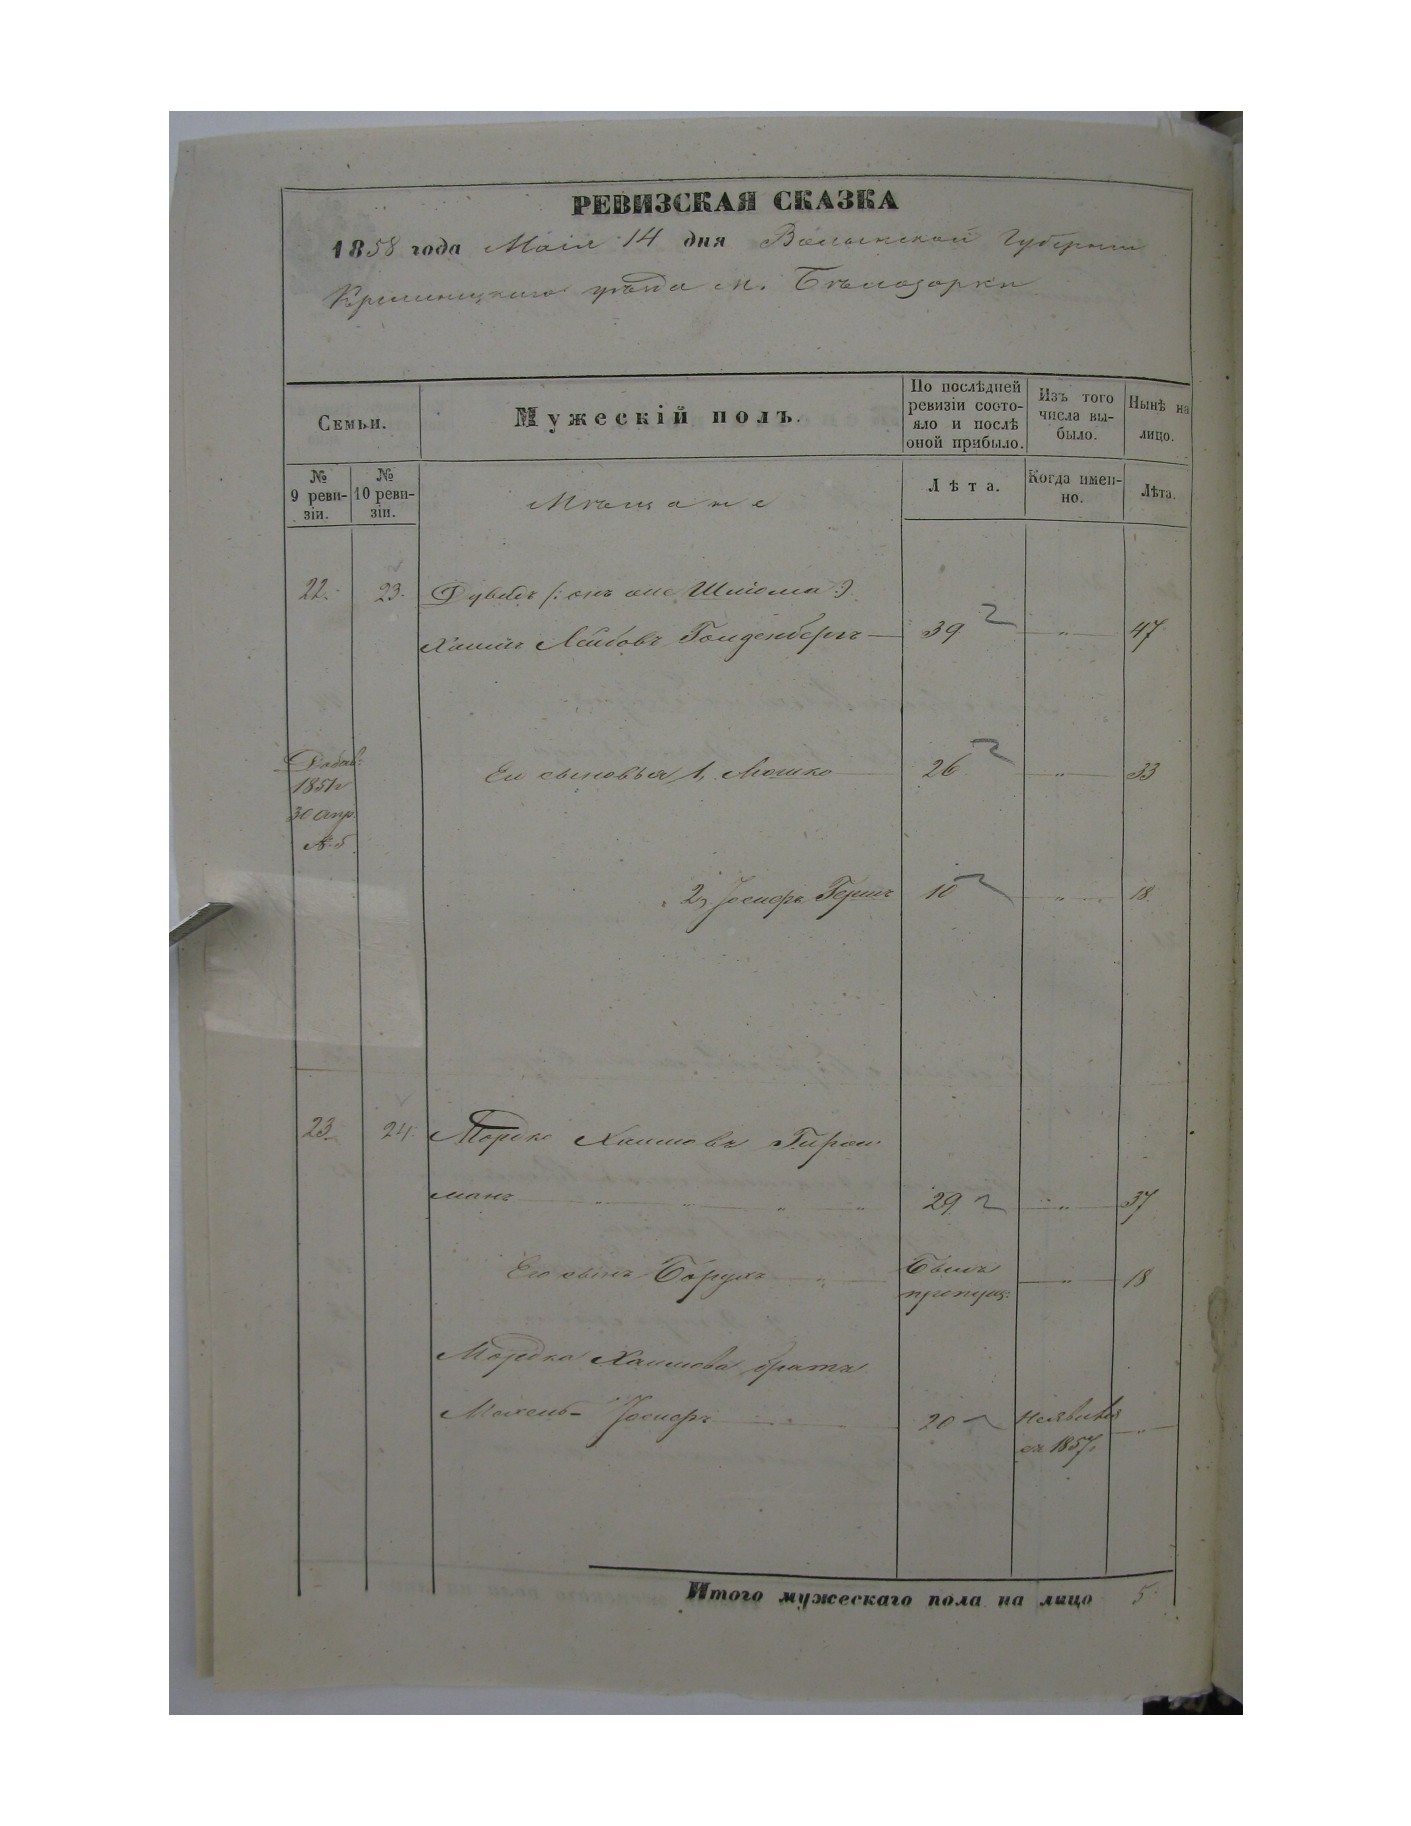 РЕВИЗСКАЯ СКАЗКА
1858 года Маія 14 дня Волынской Губерніи
Кременецкаго уѣзда м. Бѣлозорки
Семьи.
Мужескій полъ.
По послѣдней ревизіи состо-
яло и послѣ
оной прибыло.
Изъ того
числа вы-
было.
Нынѣ на
лицо.
№
9 реви-
зіи.
№
10 реви-
зіи.
Мѣщане
Лѣта.
Когда имен-
но.
Лѣта.
22. 23. (: онъ же Шліома :)
Хаимъ Лейбовъ Голденбергъ 39 " 47
Добав:
1851 г
30 апр.
№ 5
Его сыновья 1, Мошко 26 " 33
2, Іосифъ Гершъ 10 " 18.
23. 24. Мордко Хаимовъ
манъ " " " " 29 " 37
Его сынъ Борухъ " Былъ
пропущ: " 18
Мордка Хаимова братъ
Іосифъ " 20 Неявився
съ 1857г. "
Итого мужескаго пола на лицо 5